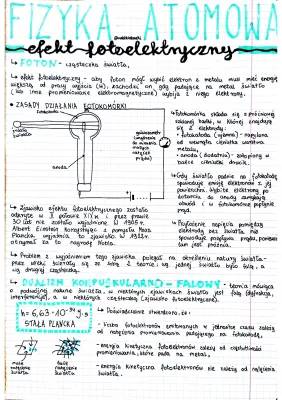 FIZYKA ATOMOWA
efekt fotoelektryczny
FOTON - cząsteczka światła,
efekt fotoelektryczny - aby foton mógł wybić elektron z metalu musi mieć energię
większą, od pracy wyjścia (W), zachodzi on gdy padające na metal światło
(lub inne promieniowanie elektromagnetyczne) wybija z niego elektrony.
ZASADY DZIAŁANIA FOTOKOMÓRKI
wiązka
światła
anoda
galwanometr
(urządzenie
do mierzenia
małych
natężeń
prądu)
fotokomórka składa się z próżniowej
szklanej bańki, w której znajdują
się 2 elektrody:
- fotokatoda (ujemna) - napylona
od wewnątrz cienka warstwa
metalu,
- anoda (dodatnia) - zatopiony w
bańce cienkiej drucik.
Gdy światło padnie na fotokatodę
spowoduje emisję elektronów z jej
powierzchni. Wybite elektrony po
dotarciu do anody zamykają
obwód i w fotokomórce popłynie
prąd.
Przyłożenie napięcia pomiędzy
elektrody bez światła nie
spowoduje przepływu prądu, ponieważ
tam jest próżnia.
Zjawisko efektu fotoelektrycznego zostało
odkryte w II połowie XIX w. i przez prawie
30 lat nie zostało wyjaśnione. W 1905 r.
Albert Einstein korzystając z pomysłu Maxa
Plancka wyjaśnił to zjawisko i w 1922 r.
otrzymał za to nagrodę Nobla.
Problem z wyjaśnieniem tego zjawiska polegał na określeniu natury światła -
przez wieki ścierały się ze sobą 2 teorie: wg jednej światło było falą, a
wg drugiej cząsteczką.
DUALIZM KORPUSKULARNO - FALOWY - teoria mówiąca
o podwójnej naturze światła, w niektórych zjawiskach światło jest falą (dyfrakcja,
interferencja), a w niektórych cząsteczką (zjawisko fotoelektryczne).
h = 6,63 · 10⁻³⁴ J·s
STAŁA PLANCKA
Doświadczenie stwierdzono, że:
- liczba fotoelektronów emitowanych w jednostce czasu zależy
od natężenia promieniowania padającego na fotokatodę,
- energia kinetyczna fotoelektronów zależy od częstotliwości
promieniowania, które pada na metal,
- energia kinetyczna fotoelektronów nie zależy od natężenia
światła.
małe
natężenie
światła
duże
natężenie
światła